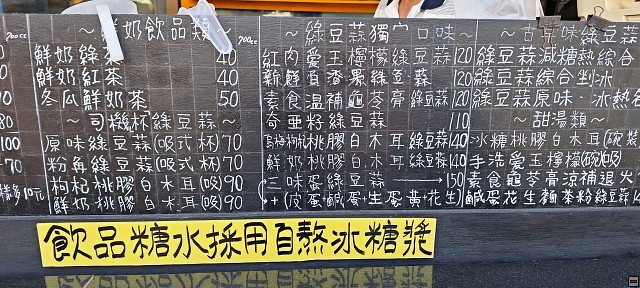 700cc
~鮮奶飲品類~
鮮奶綠茶 40
鮮奶紅茶 40
冬瓜鮮奶茶 50
~司機杯綠豆蒜~
原味綠豆蒜(吸式杯)70
粉角綠豆蒜(吸式杯)70
枸杞桃膠白木耳(吸)90
鮮奶桃膠白木耳(吸)90
80
100
70
多10元
700cc
~綠豆蒜獨家口味~
紅肉愛玉檸檬綠豆蒜 120
新鮮百香果綠豆蒜 120
素食溫補龜苓膏綠豆蒜 120
奇亞籽綠豆蒜 110
枸杞桃膠白木耳綠豆蒜 140
鮮奶桃膠白木耳綠豆蒜 140
三味蛋綠豆蒜 150
(皮蛋+鹹蛋+生蛋黃+花生)
~古早味綠豆蒜~
綠豆蒜減糖熱綜合
綠豆蒜綜合剉冰
綠豆蒜原味·冰熱
~甜湯類~
冰糖桃膠白木耳(碗裝
手洗愛玉檸檬(碗/吸)
素食龜苓膏涼補退火
鹹蛋花生麵茶粉綠豆蒜
飲品糖水採用自熬冰糖漿